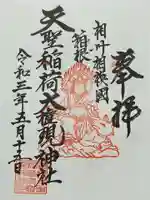 奉拝
相州箱根国
箱根
天聖稲荷大権現神社
令和三年五月十五日